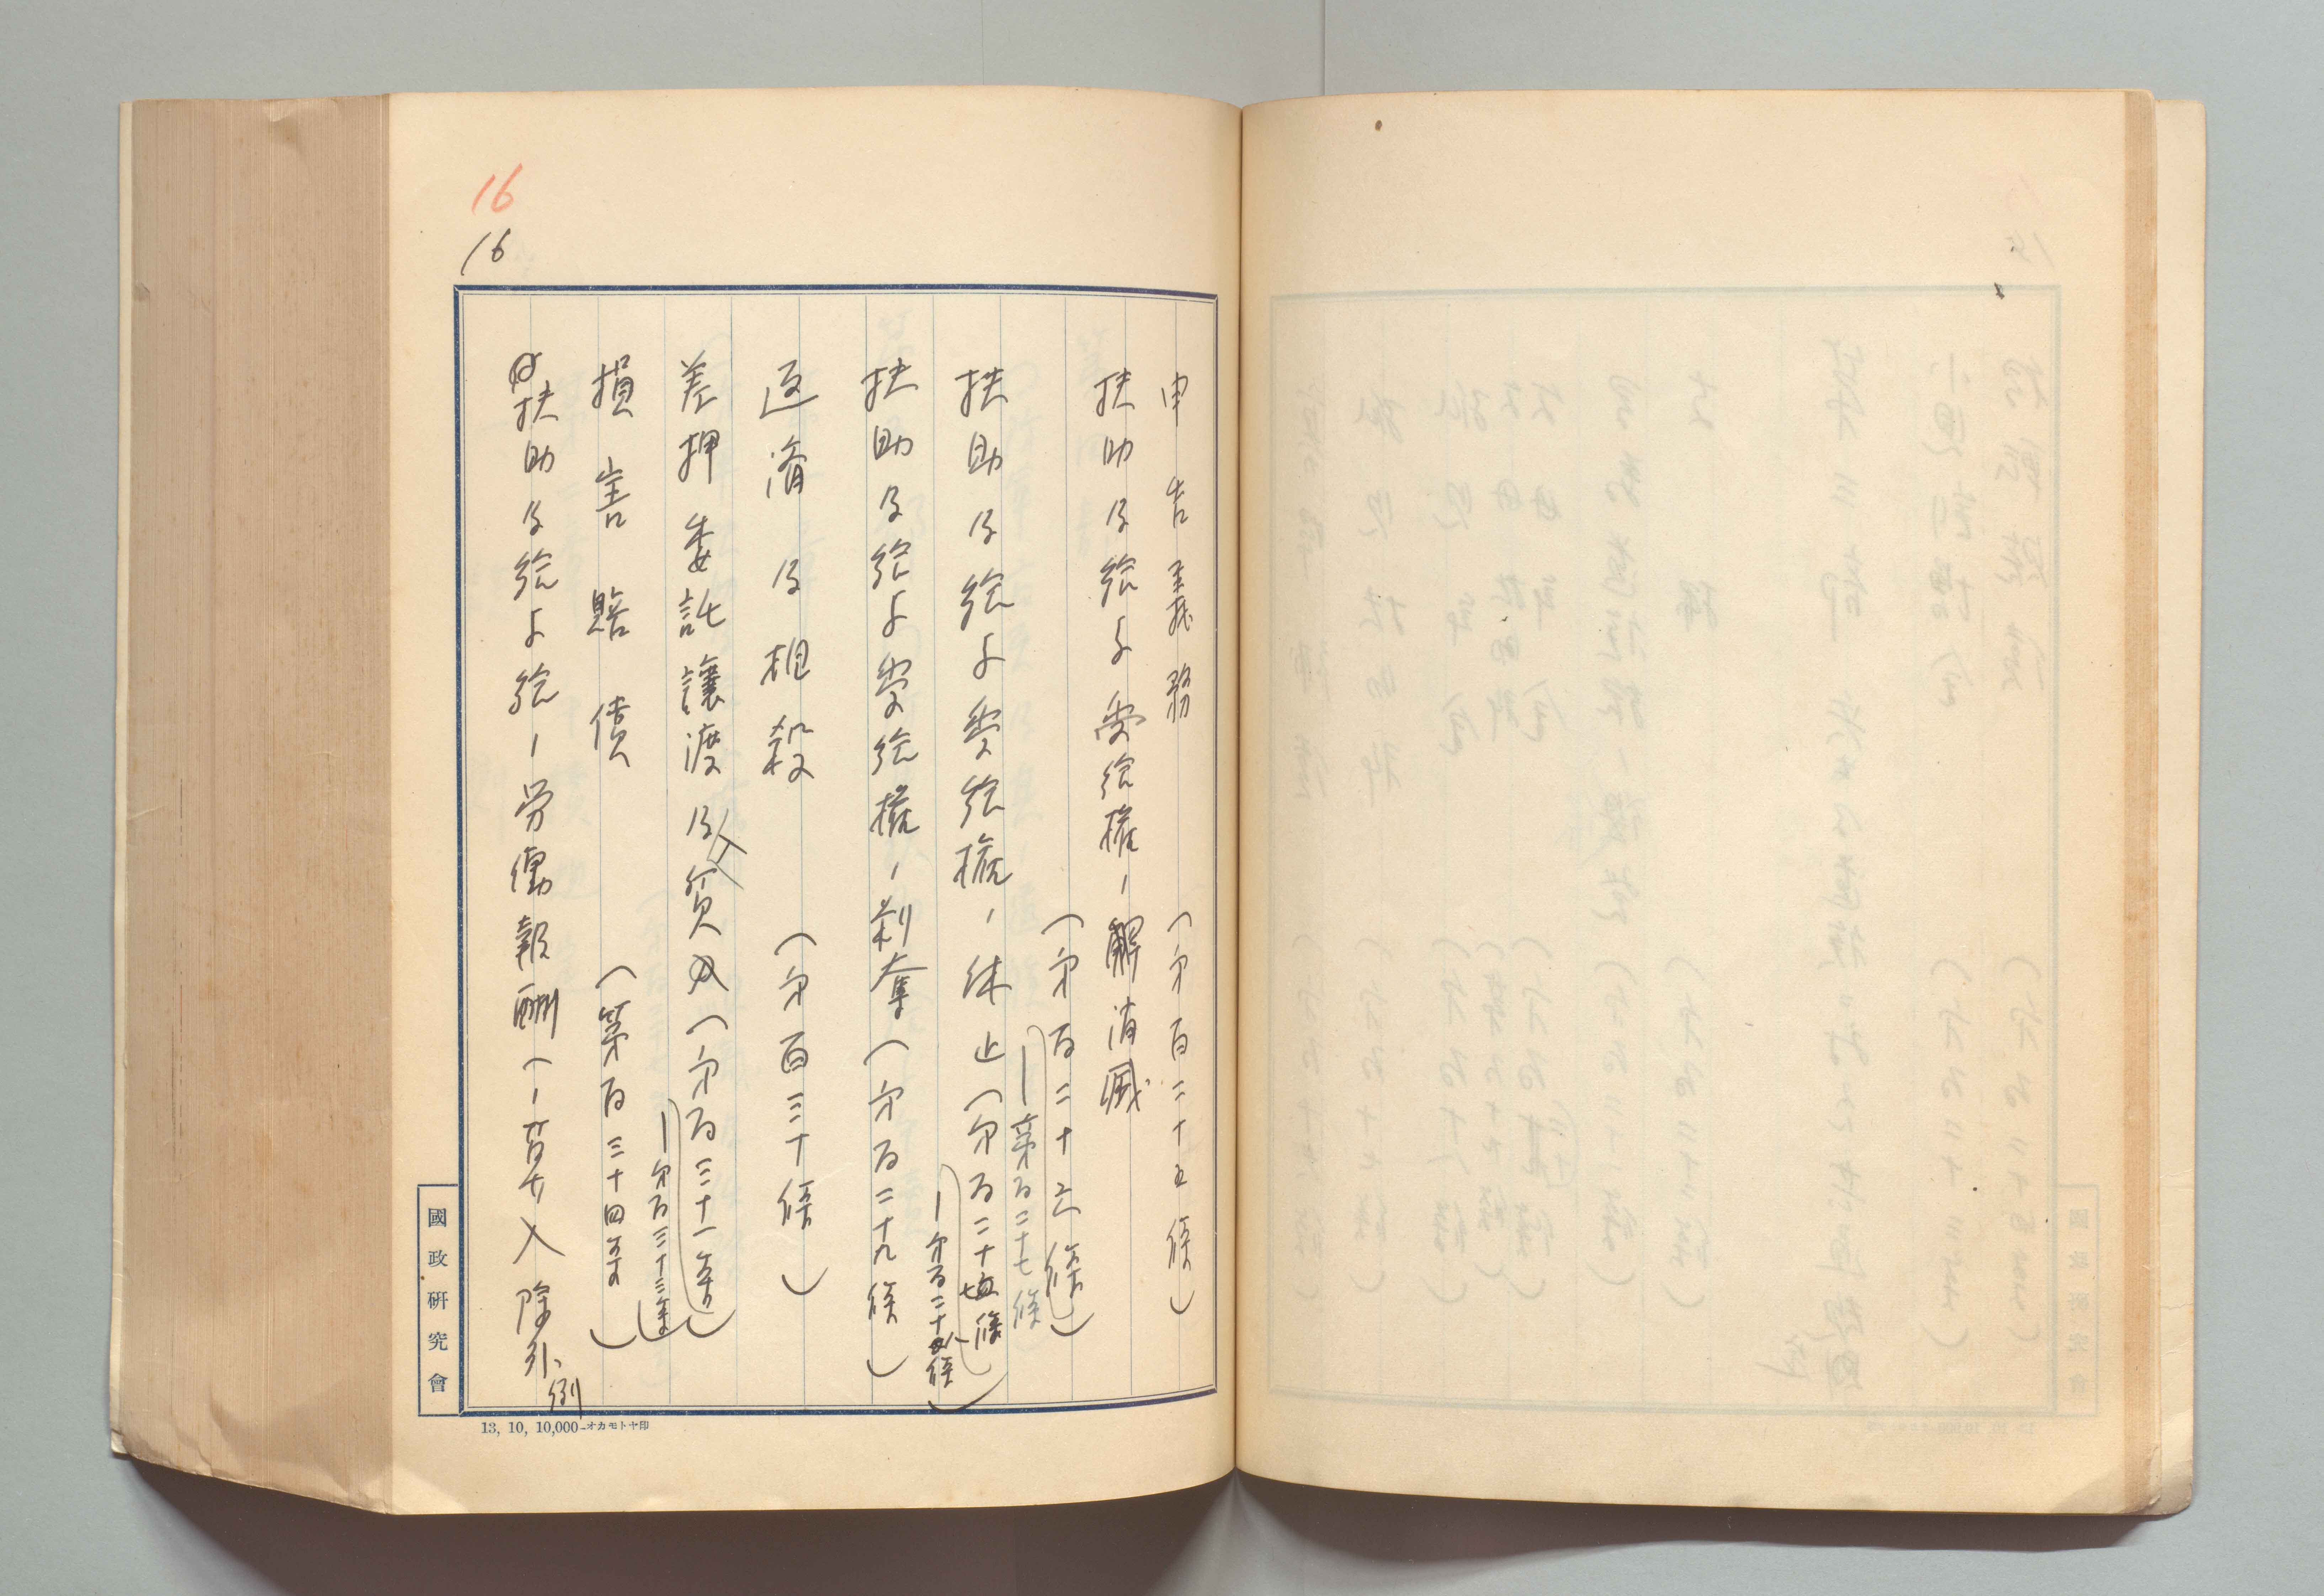 16
16
申告義務(第百二十五條)
扶助及給与受給權ノ解消滅
(第百二十六條)
―第百二十七條
扶助及給与受給權ノ休止(第百二十七條
―第百二十八條)
扶助及給与受給權ノ剥奪(第百二十九條)
返済及相殺(第百三十條)
差押委託讓渡及質入(第百三十一條)
―第百三十三條)
損害賠償(第百三十四條)
扶助及給与給ノ労働報酬(ノ算入除外
例
國政研究會
13, 10, 10,000-オカモトヤ印